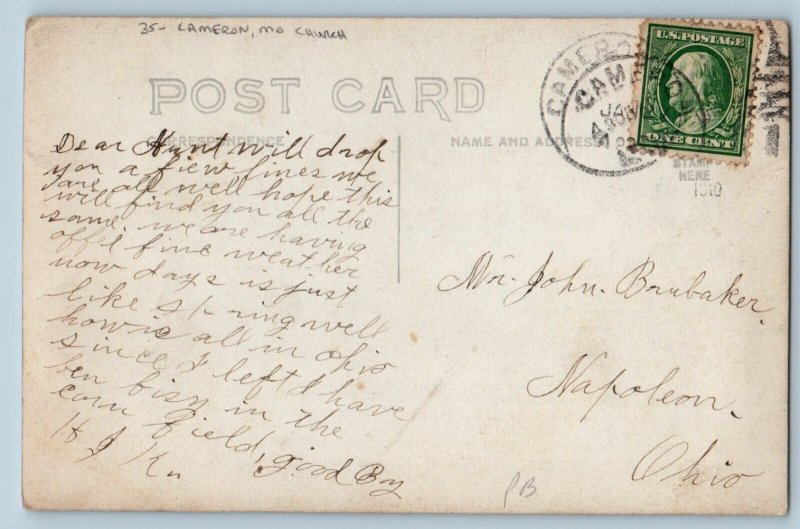 35- CAMERON, MO CHURCH
POST CARD
CORRESPONDENCE
NAME AND ADDRESS
U.S. POSTAGE
ONE CENT
CAMERON
STAMP
HERE
1910
Dear Aunt will drop
you a few lines we
are all well hope this
will find you all the
same. we are having
fine weather
now days is just
like spring well
how is all in ohio
since I left I have
ben bisy in the
corn field, good Boy
H J
Mr. John. Brubaker.
Napoleon.
Ohio
PB